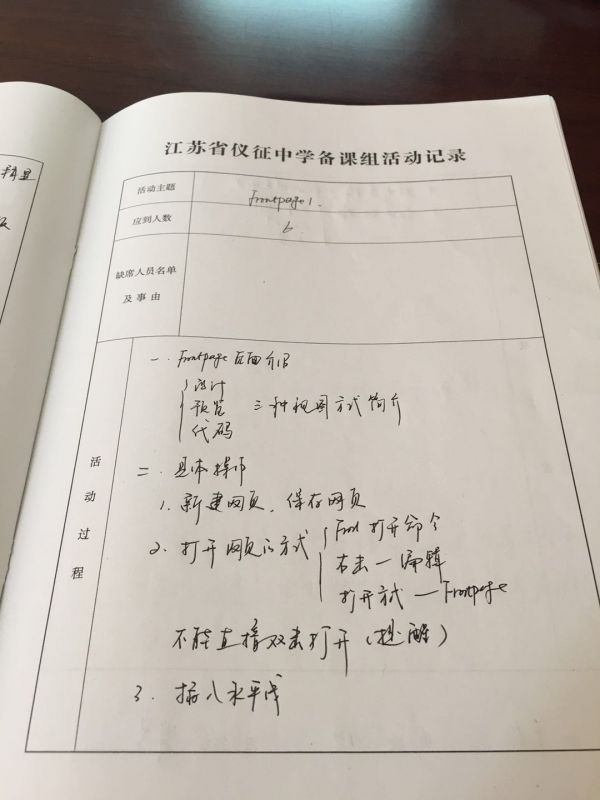 江苏省仪征中学备课组活动记录
活动主题
Frontpage 1.
应到人数
6
缺席人员名单
及事由
活动过程
一. Frontpage 页面介绍
设计
预览 三种视图方式简介
代码
二. 具体操作
1. 新建网页, 保存网页
2. 打开网页的方式
Front 打开命令
右击 — 编辑
打开方式 — Frontpage
不能直接双击打开 (提醒)
3. 插入水平线